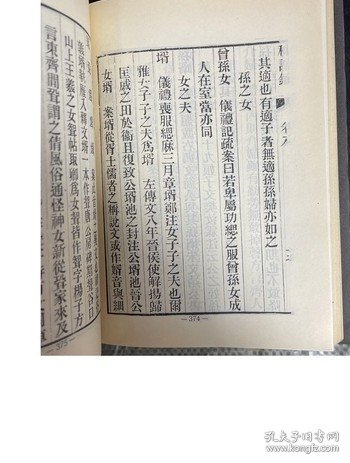 稱謂錄 卷八
其適也有適子者無適孫孫婦亦如之
孫之女
曾孫女 儀禮記疏案曰若卑屬功緦之服曾孫女成
人在室當亦同
女之夫
壻 儀禮喪服緦麻三月章壻鄭注女子子之夫也爾
雅女子子之夫爲壻 左傳文八年晉侯使解揚歸
匡戚之田於衞且復致公壻池之封注公壻池晉公
女壻 案壻從胥士儒者之稱說文或作婿音與細
—374—
山上王羲之女聟帖取卿爲女聟字楊子方
言東齊間聟謂之倩風俗通怪神女新從聟家來及
—375—
孔夫子旧书网